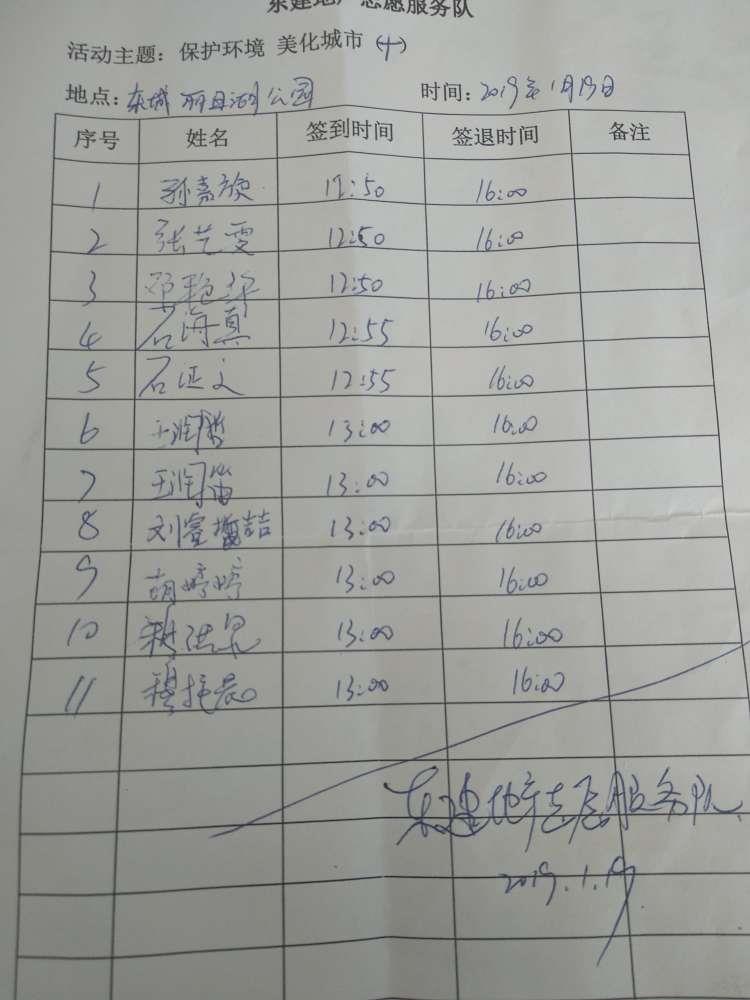 东建地产志愿服务队
活动主题：保护环境 美化城市（十）
地点：东城丽日湖公园 时间：2019年1月19日
序号 姓名 签到时间 签退时间 备注
1 孙嘉旋 12:50 16:00
2 张艺雯 12:50 16:00
3 邓艳华 12:50 16:00
4 石海真 12:55 16:00
5 石证文 12:55 16:00
6 王润哲 13:00 16:00
7 王润笛 13:00 16:00
8 刘睿喆 13:00 16:00
9 胡婷婷 13:00 16:00
10 13:00 16:00
11 13:00 16:00
东建地产志愿服务队
2019.1.19